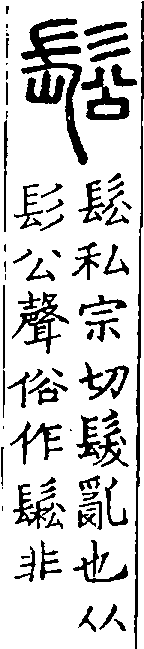 䯳
䯳私宗切髮亂也从
髟公聲俗作鬆非